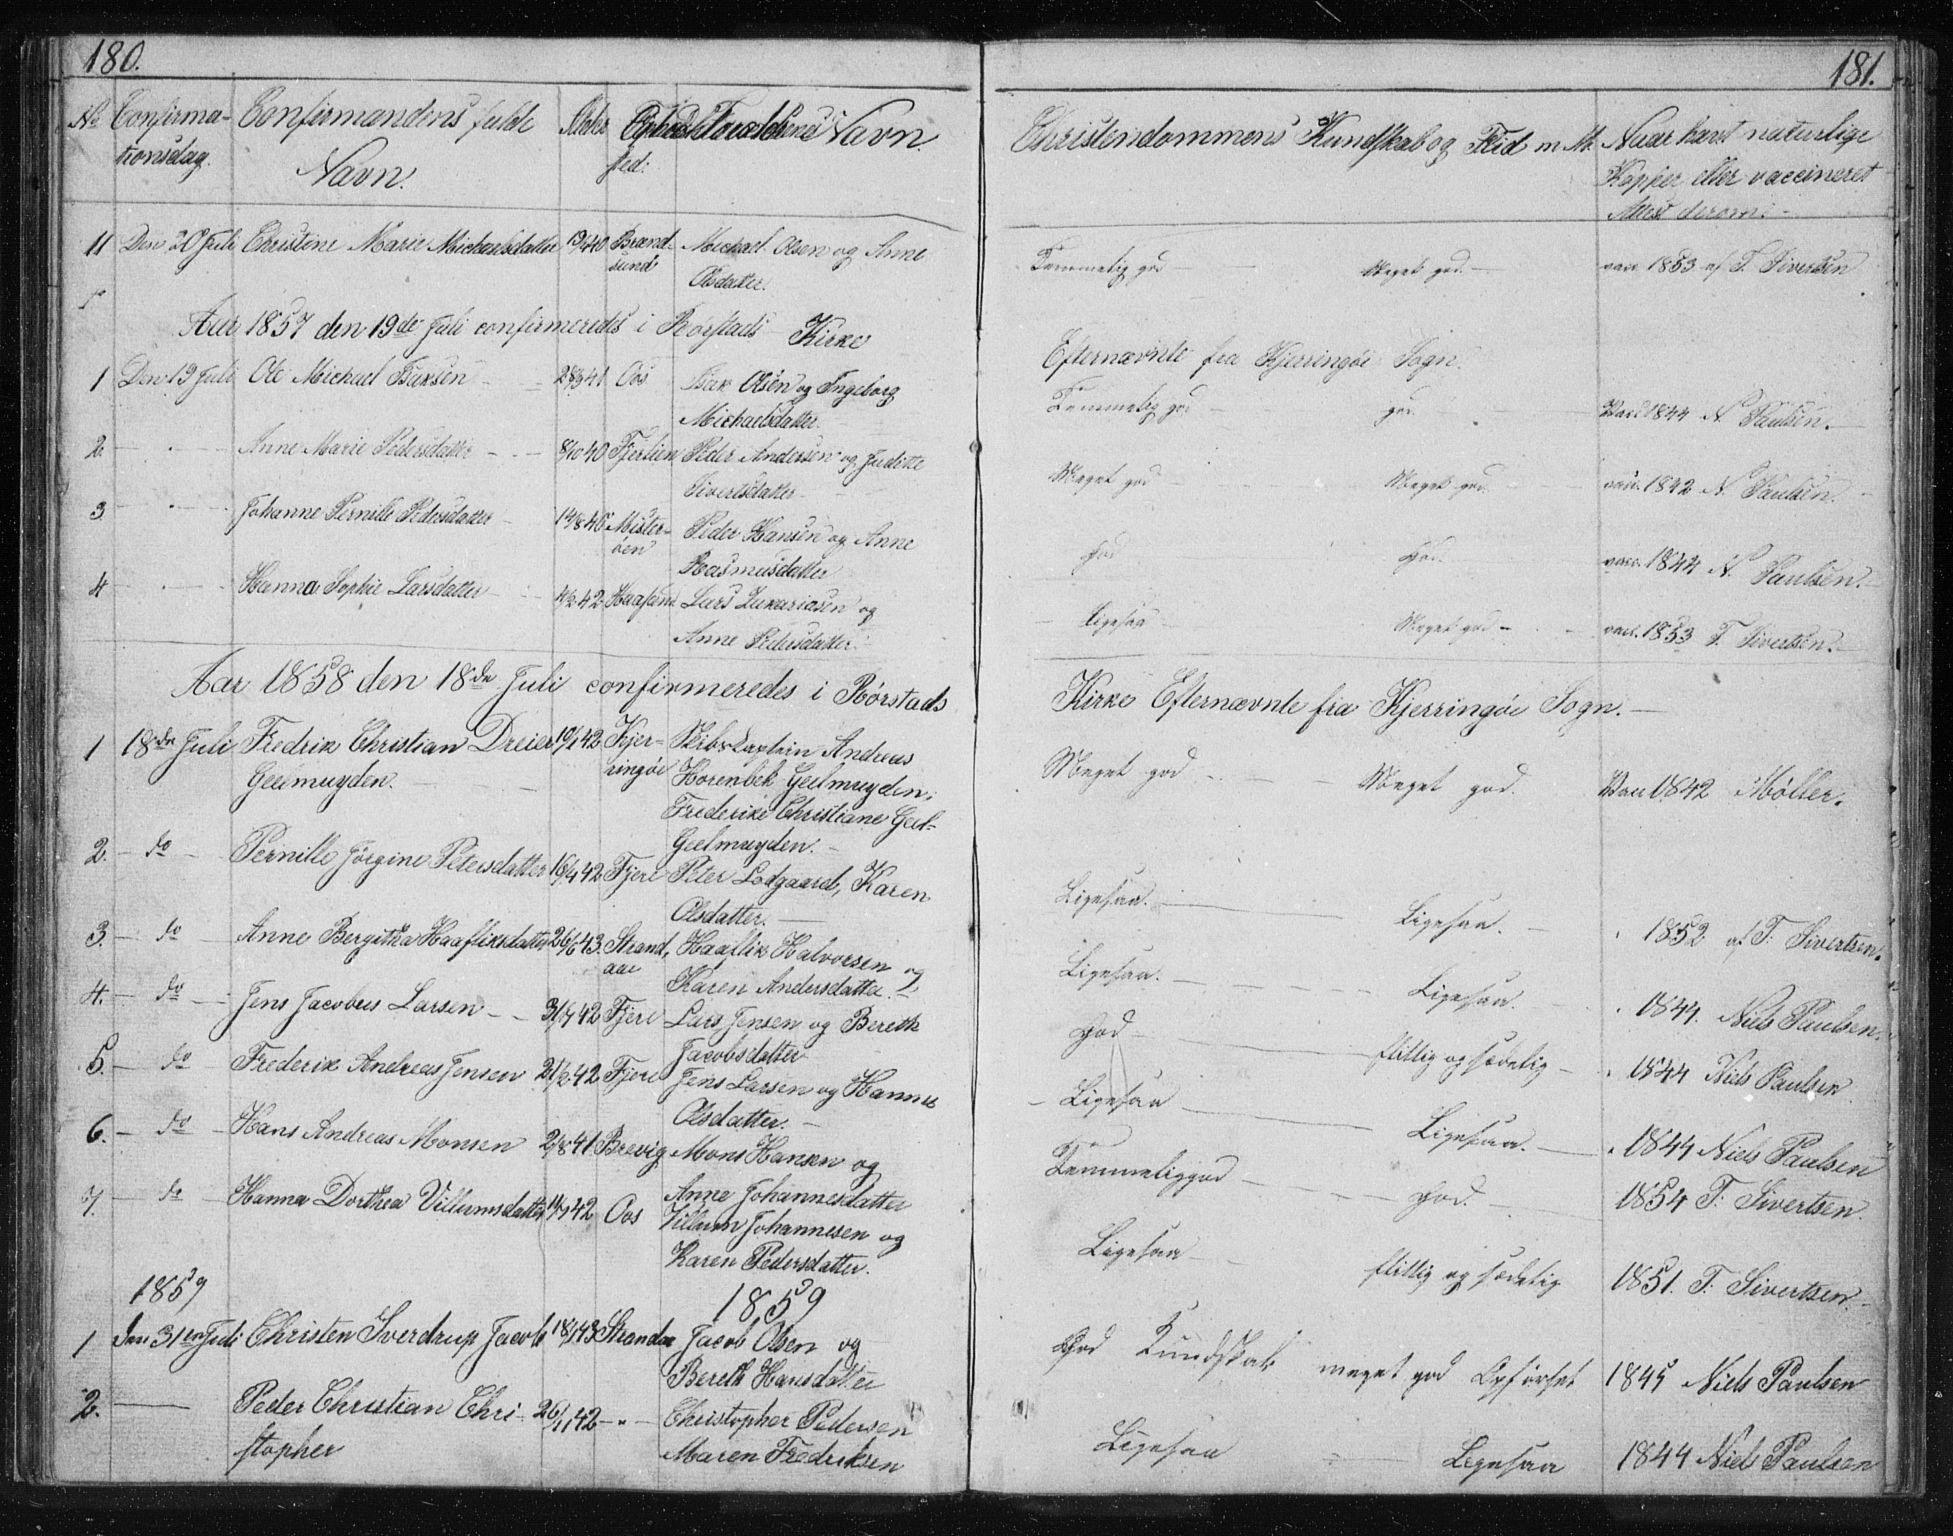 180.
No Confirma-
tionsdag.
Confirmandens fulde
Navn.
Alder
sted:
Forældrenes Navn.
11 Den 20 Juli Christine Marie Michaelsdatter 13/4 40 Brænd-
sund
Michael Olsen og Anne
Olsdatter.
Aar 1857 den 19de Juli confirmeredes i Rørstads Kirke
1 Den 19 Juli Ole Michael Isaksen 28/3 41 Oos Isak Olsen og Ingeborg
Michaelsdatter
2 Anne Marie Pedersdatter 8/10 40 Fjerlien Peder Andersen og Juditte
Sivertsdatter
3 Johanne Pernille Pedersdatter 14/8 40 Mister-
øen
Peder Hansen og Anne
Rasmusdatter
4 Hanna Sophie Larsdatter 4/2 42 Haasund Lars Zakariasen og
Anne Pedersdatter.
Aar 1858 den 18de Juli confirmeredes i Rørstads
1 18de Juli Fredrik Christian Dreier 10/1 42 Kjer-
ringøe
Geelmuyden.
Skibskaptein Andreas
Horenbek Geelmuyden,
Frederike Christiane Geel-
Geelmuyden.
2. do Pernille Jørgine Petersdatter 16/4 42 Fjere Peter Lodgaard, Karen
Olsdatter.
3. do Anne Bergitha Haafliksdatter 26/6 43. Strand,
aae
Haaflik Halvorsen og
Karen Andersdatter.
4. do Jens Jacobus Larsen 31/7 42 Fjere Lars Jensen og Bereth
Jacobsdatter
5. do Frederik Andreas Jensen 21/2 42 Fjere Jens Larsen og Hanna
Olsdatter.
6. do Hans Andreas Monsen 2/8 41 Brevig Mons Hansen og
Anne Johannesdatter
7. do Hanna Dorthea Villumsdatter 11/7 42 Oos Villum Johannesen og
Karen Pedersdatter.
1859 1859
1 den 31en Juli Christen Sverdrup Jacob 18/1 43 Strandaa Jacob Olsen og
Bereth Hansdatter
2. Peder Christian Chri- 26/11 42 Christopher Pedersen
stopher
Maren Fredriksen
181.
Christendommens Kundskab og Flid m. M.
Naar havt naturlige
Kopper eller vaccineret
Attest derom.
Temmelig god Meget god. vacc. 1853 af T. Sivertsen
Efternævnte fra Kjerringøe Sogn.
Temmelig god god. Vacc. 1844 N. Paulsen.
Meget god Meget god. vacc. 1842 N. Paulsen.
God God. vacc. 1844 N. Paulsen.
Ligesaa Meget god vacc. 1853 T. Sivertsen.
Kirke Efternævnte fra Kjerringøe Sogn.
Meget god Meget god. Vacc 1842 Møller.
Ligesaa. Ligesaa. 1852 af T. Sivertsen.
Ligesaa. Ligesaa. 1844. Niels Paulsen.
God flittig og sædelig 1844 Niels Paulsen
Ligesaa Ligesaa. 1844 Niels Paulsen
Temmelig god God. 1854 T. Sivertsen.
Ligesaa flittig og sædelig 1851. T. Sivertsen.
God Kundskab meget god Opførsel 1845 Niels Paulsen
Ligesaa Ligesaa 1844 Niels Paulsen